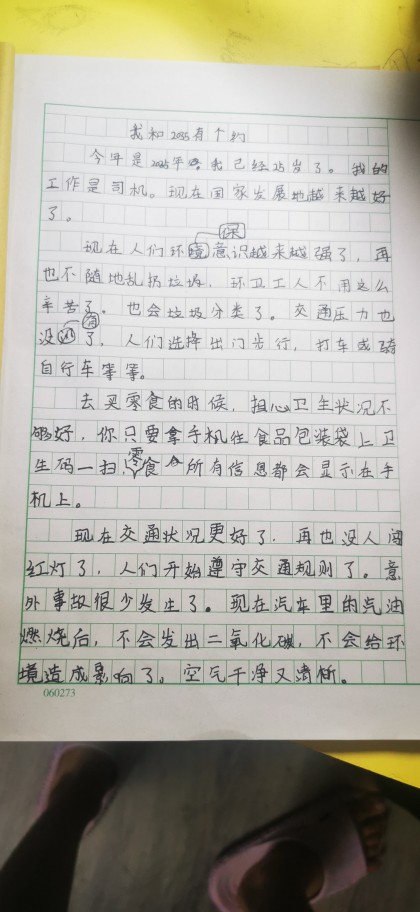 我和2035有个约
今年是2035年，我已经25岁了。我的
工作是司机。现在国家发展地越来越好
了。
保
现在人们环境意识越来越强了，再
也不随地乱扔垃圾，环卫工人不用这么
辛苦了。也会垃圾分类了。交通压力也
有
没了，人们选择出门步行，打车或骑
自行车等等。
去买零食的时候，担心卫生状况不
够好，你只要拿手机往食品包装袋上卫
生码一扫，零食所有信息都会显示在手
机上。
现在交通状况更好了，再也没人闯
红灯了，人们开始遵守交通规则了。意
外事故很少发生了。现在汽车里的汽油
燃烧后，不会发出二氧化碳，不会给环
境造成影响了。空气干净又清晰。
060273